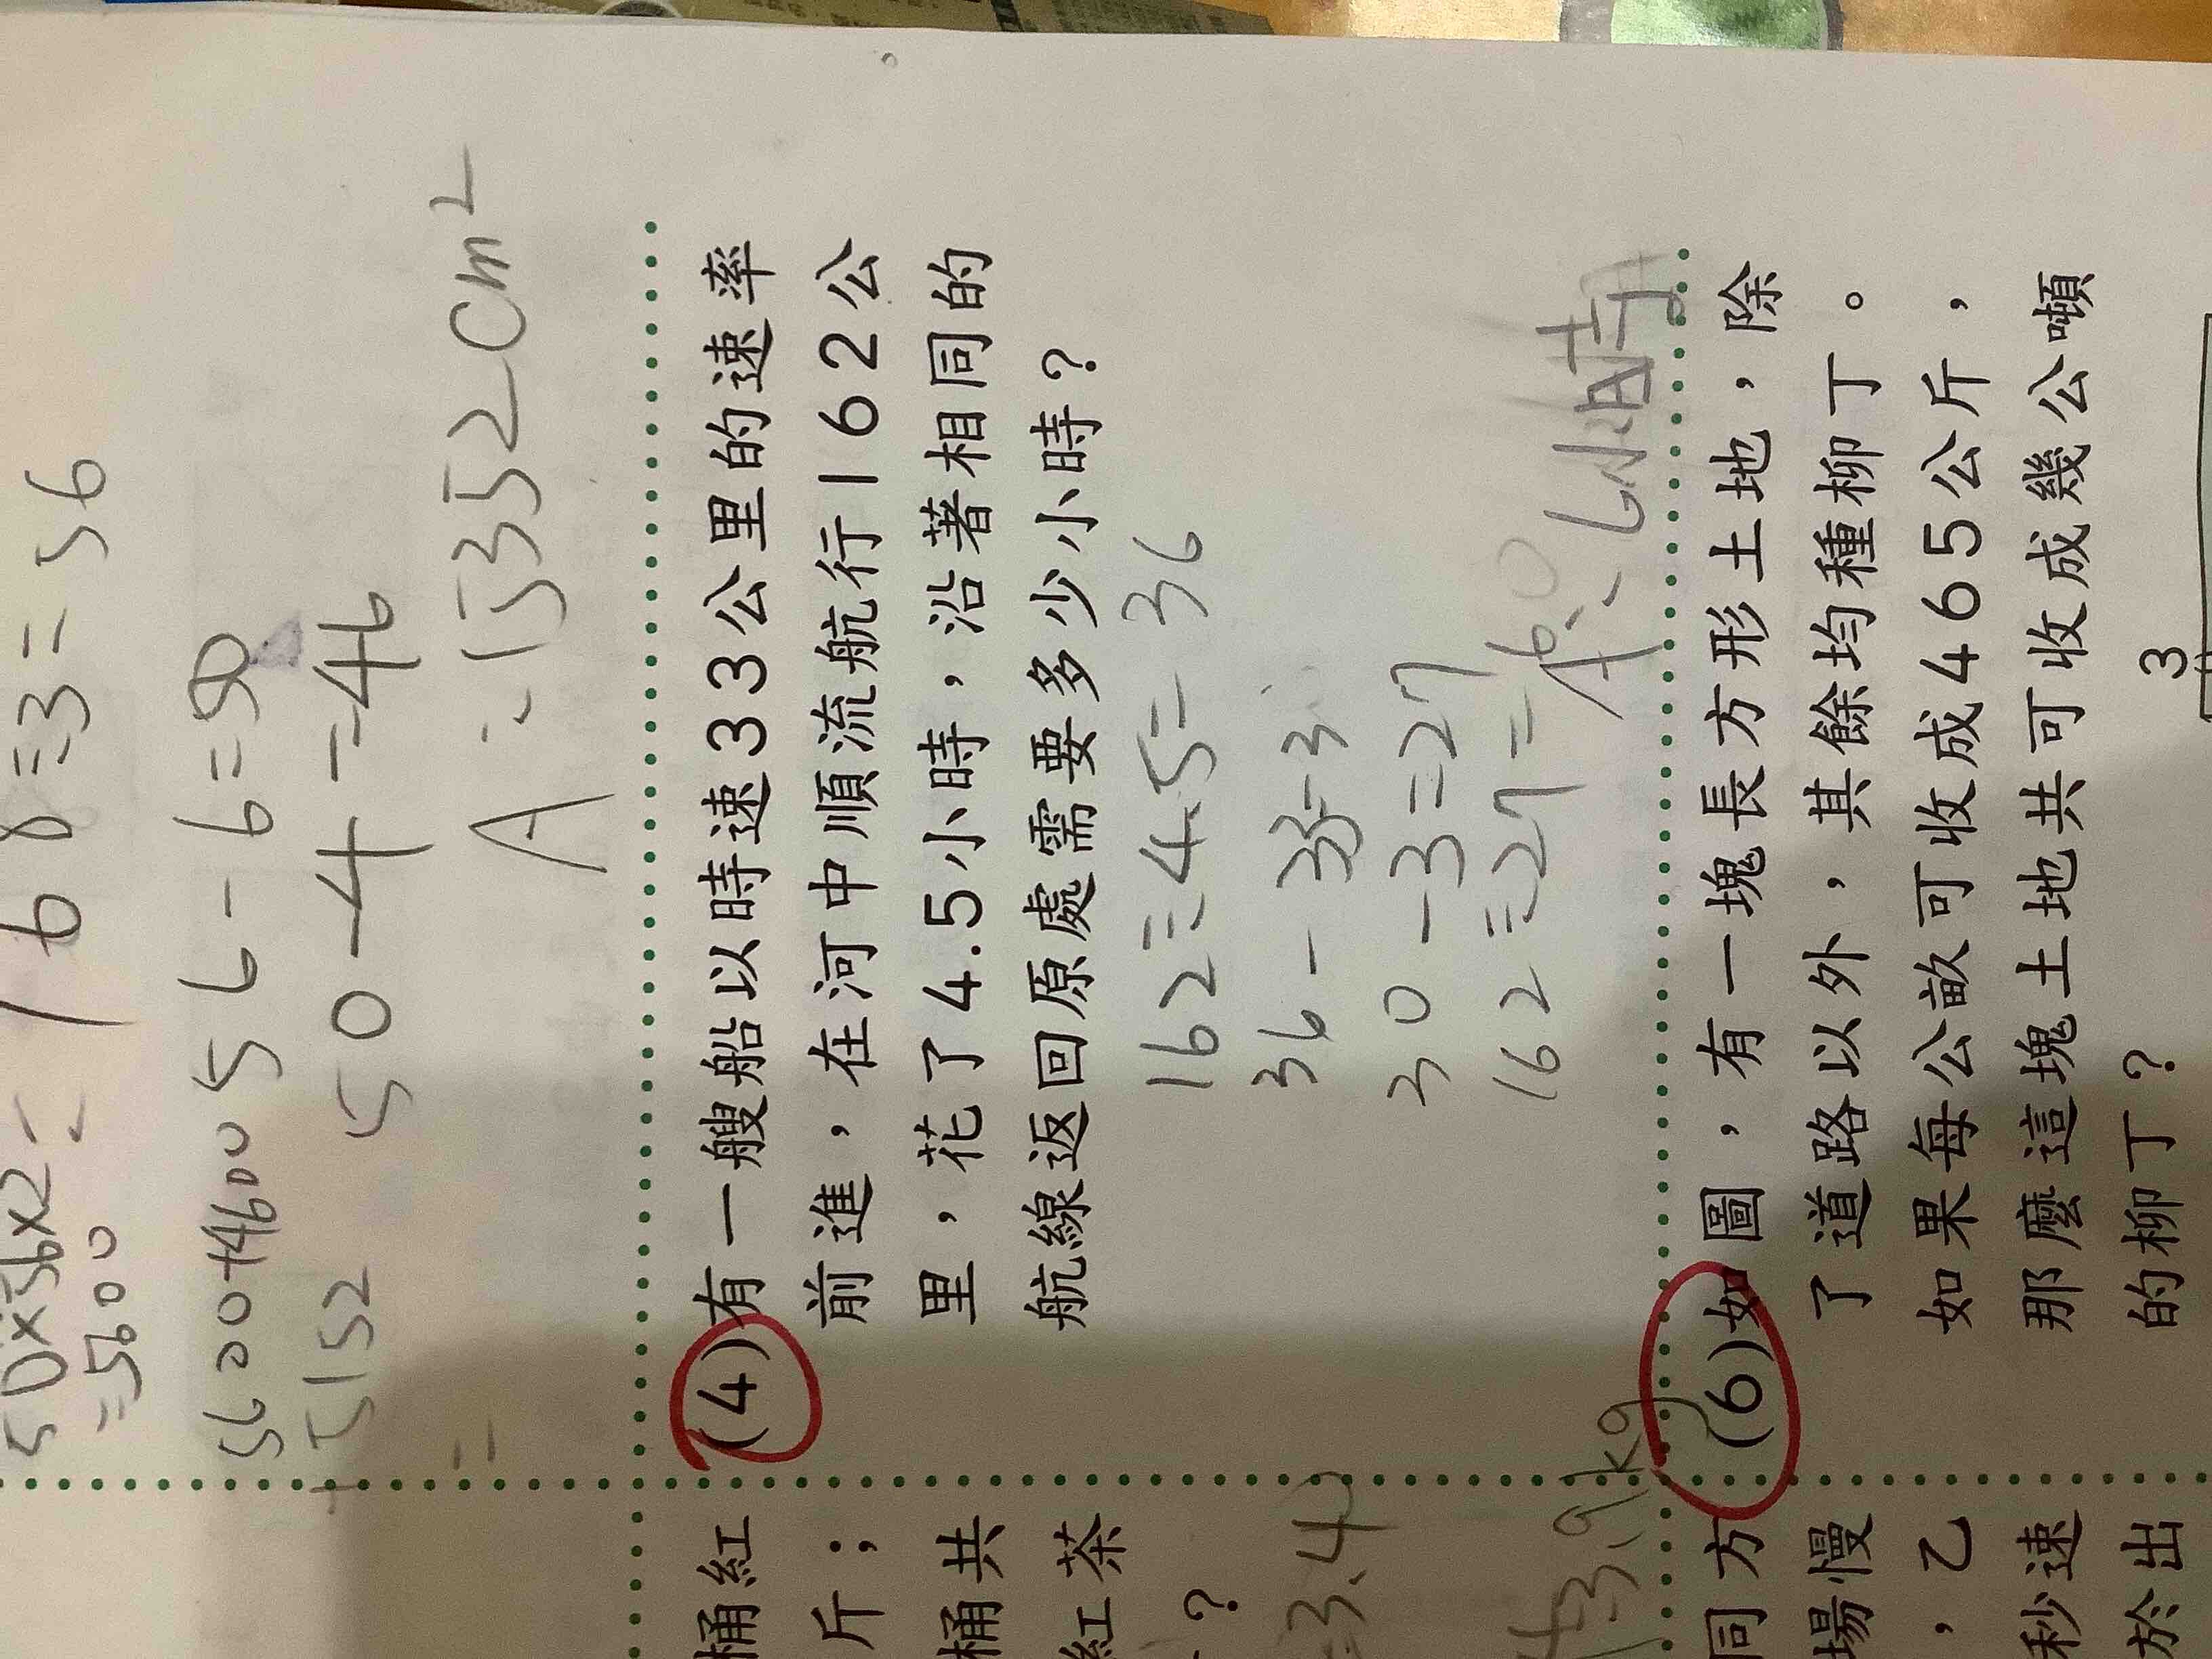 168÷3=56
50×56×2=
=5600
56-6=50
5600+4600
50-4=46
+5152
=
A:15352cm²
(4)有一艘船以時速33公里的速率
前進，在河中順流航行162公
里，花了4.5小時，沿著相同的
航線返回原處需要多少小時？
162÷4.5=36
36-33=3
30-3=27
162÷27=6
A:6小時
(6)如圖，有一塊長方形土地，除
了道路以外，其餘均種柳丁。
如果每公畝可收成465公斤，
那麼這塊土地共可收成幾公噸
的柳丁？
3
桶紅
斤；
桶共
紅茶
？
=3.4
3.9kg
同方
場慢
，乙
秒速
於出